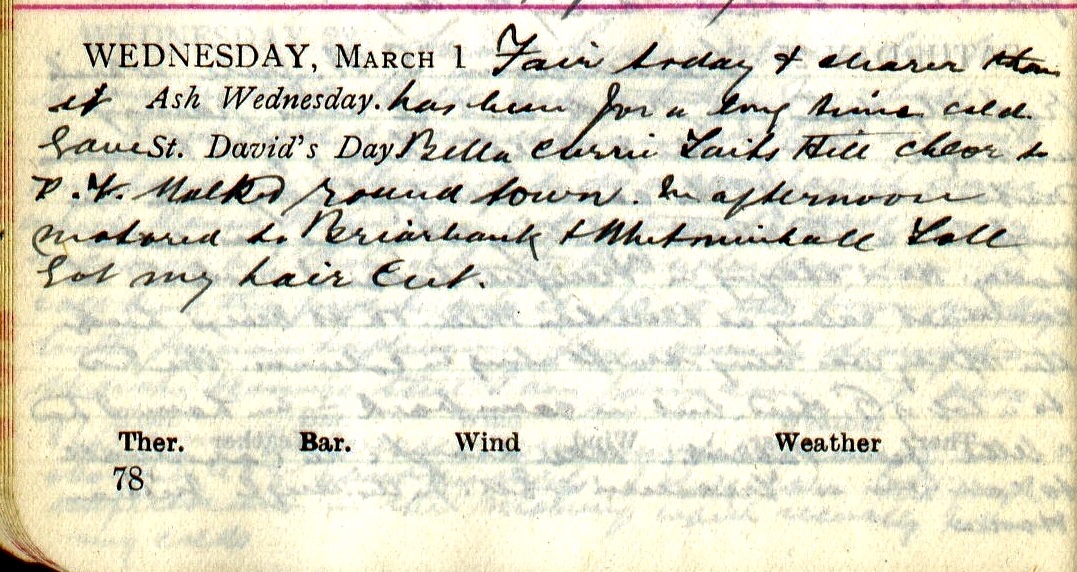 WEDNESDAY, MARCH 1 Fair today & clearer than
it Ash Wednesday. has been for a long time cold.
Gave St. David's Day Bella Currie Laits Hill cheor to
P.K. Walked round town. In afternoon
motored to Briarbank & Whitmuirhall Toll
Got my hair Cut.
Ther. Bar. Wind Weather
78